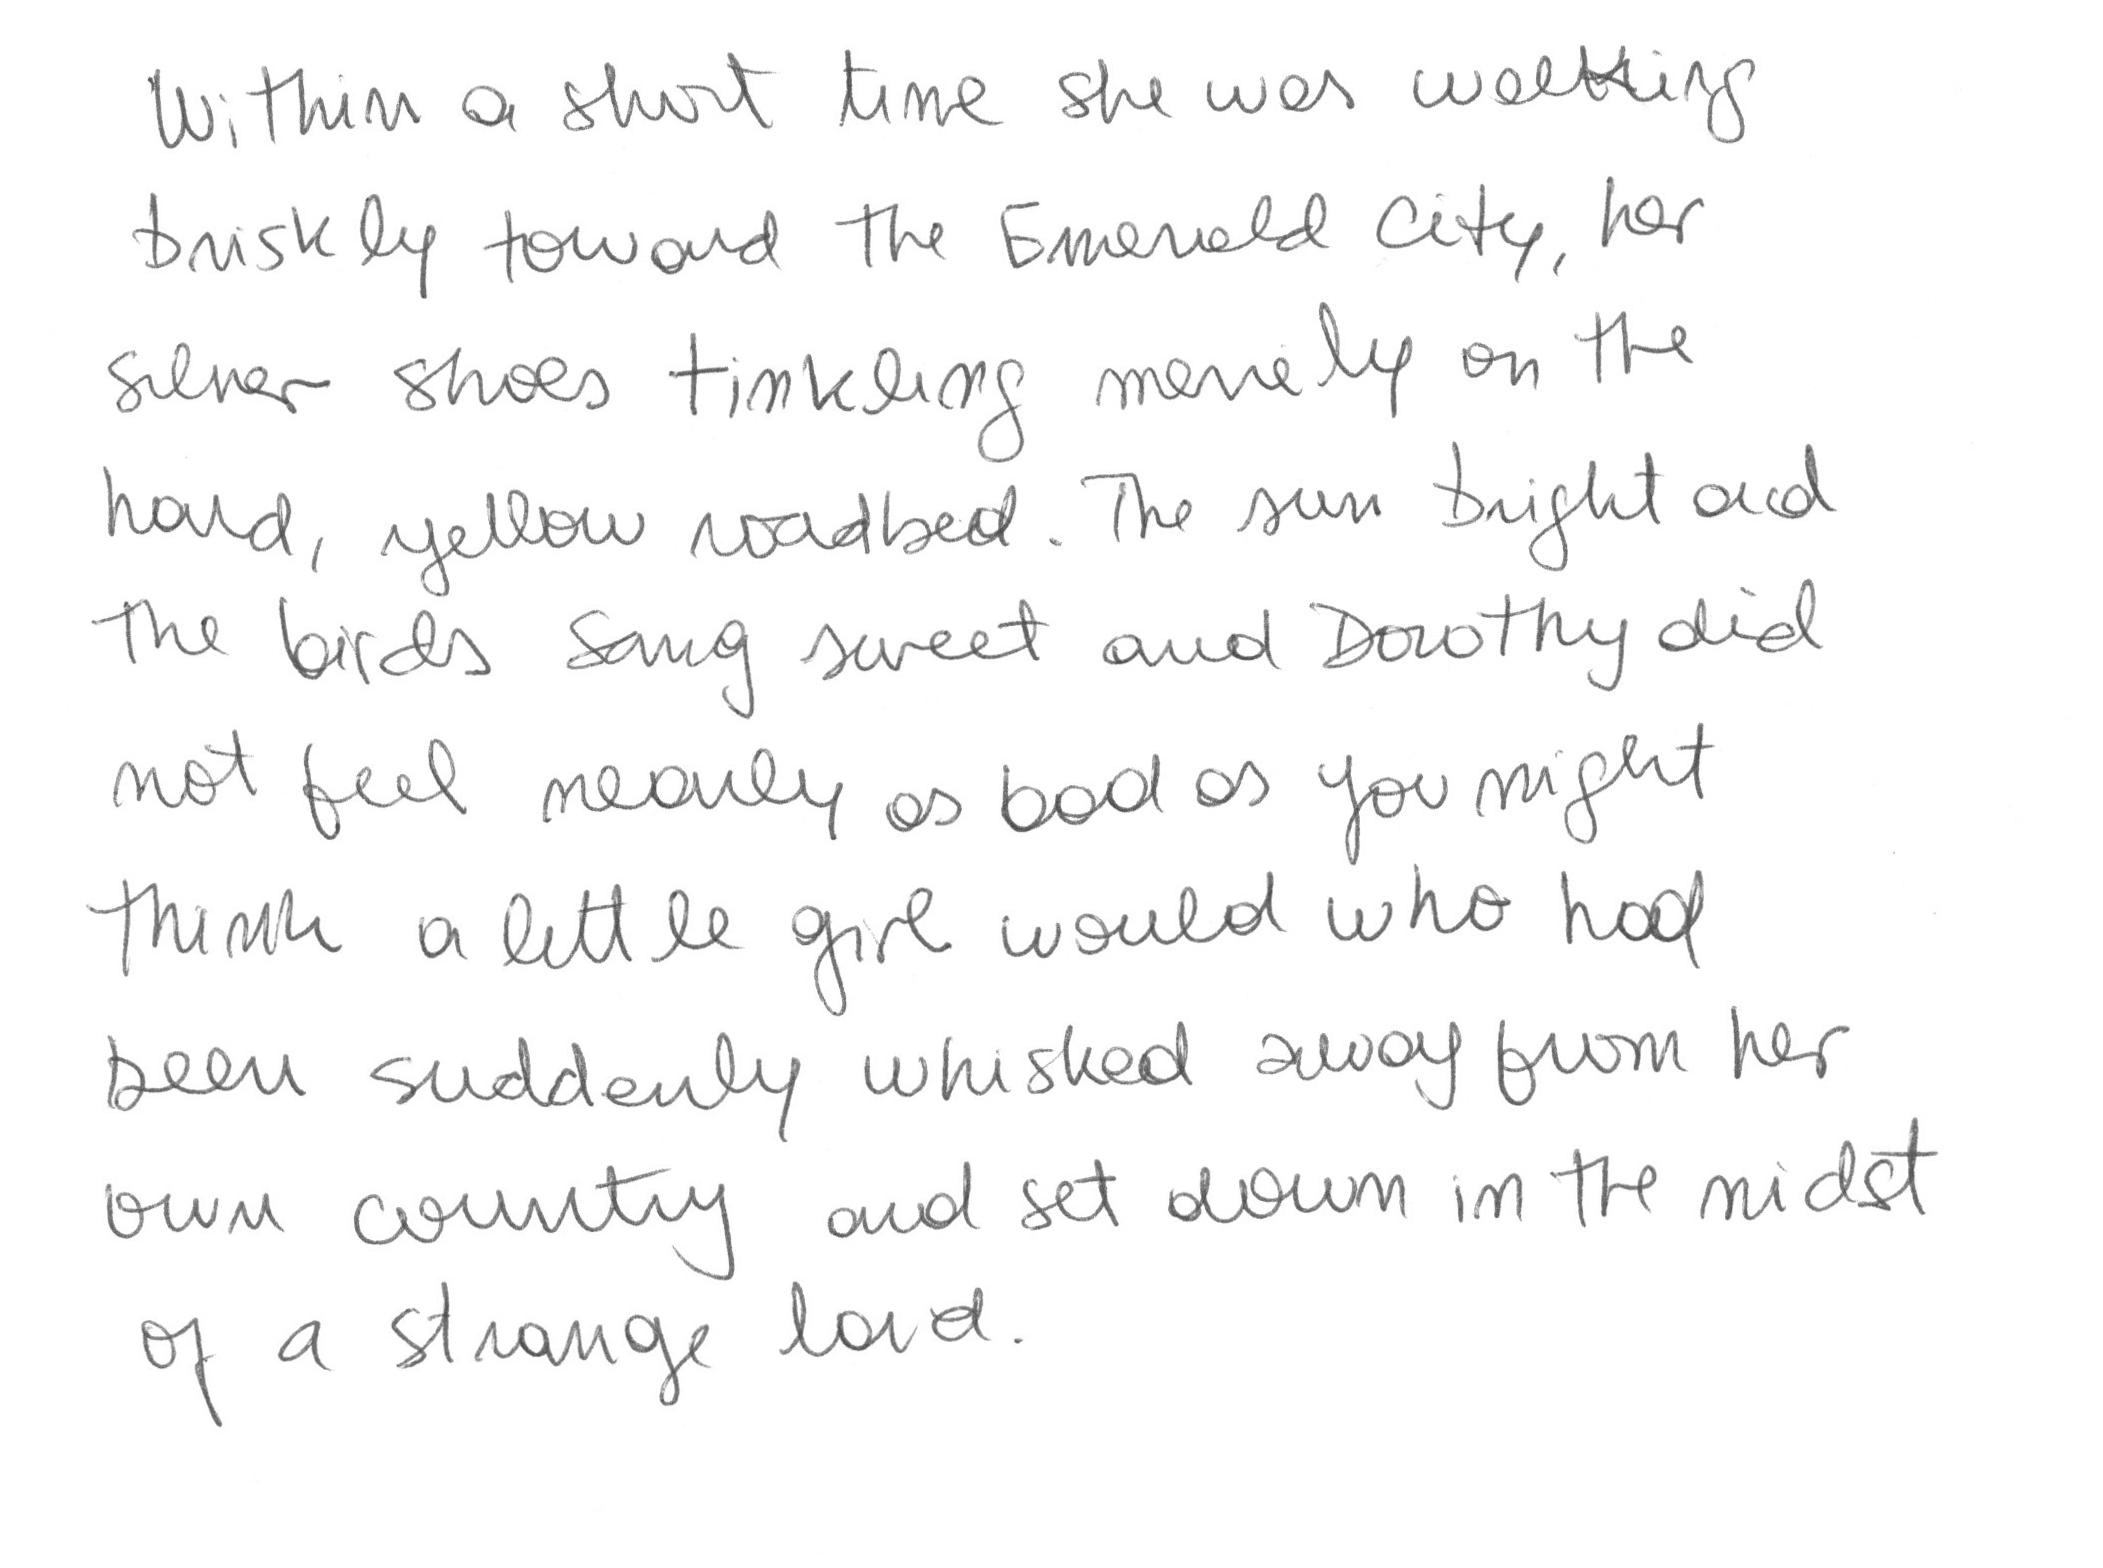 Within a short time she was walking
briskly toward the Emerald City, her
silver shoes tinkling merrily on the
hard, yellow roadbed. The sun bright and
the birds sang sweet and Dorothy did
not feel nearly as bad as you might
think a little girl would who had
been suddenly whisked away from her
own country and set down in the midst
of a strange land.